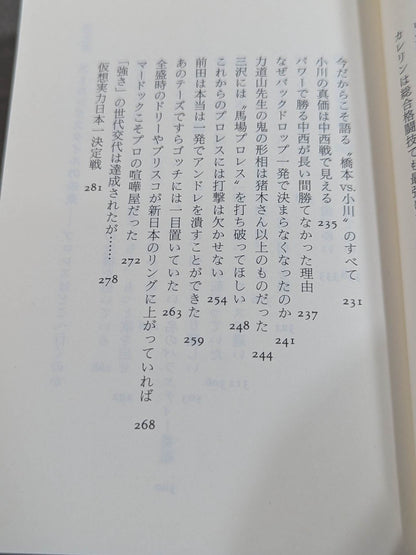 ガレリンは総合格闘技でも最
今だからこそ語る〝橋本vs.小川〟のすべて 231
小川の真価は中西戦で見える 235
パワーで勝る中西が長い間勝てなかった理由 237
なぜバックドロップ一発で決まらなくなったのか 241
力道山先生の鬼の形相は猪木さん以上のものだった 244
三沢には〝馬場プロレス〟を打ち破ってほしい 248
これからのプロレスには打撃は欠かせない 254
前田は本当は一発でアンドレを潰すことができた 259
あのテーズですらゴッチには一目置いていた 263
全盛時のドリーやブリスコが新日本のリングに上がっていれば 268
マードックこそプロの喧嘩屋だった 272
「強さ」の世代交代は達成されたが…… 278
仮想実力日本一決定戦 281